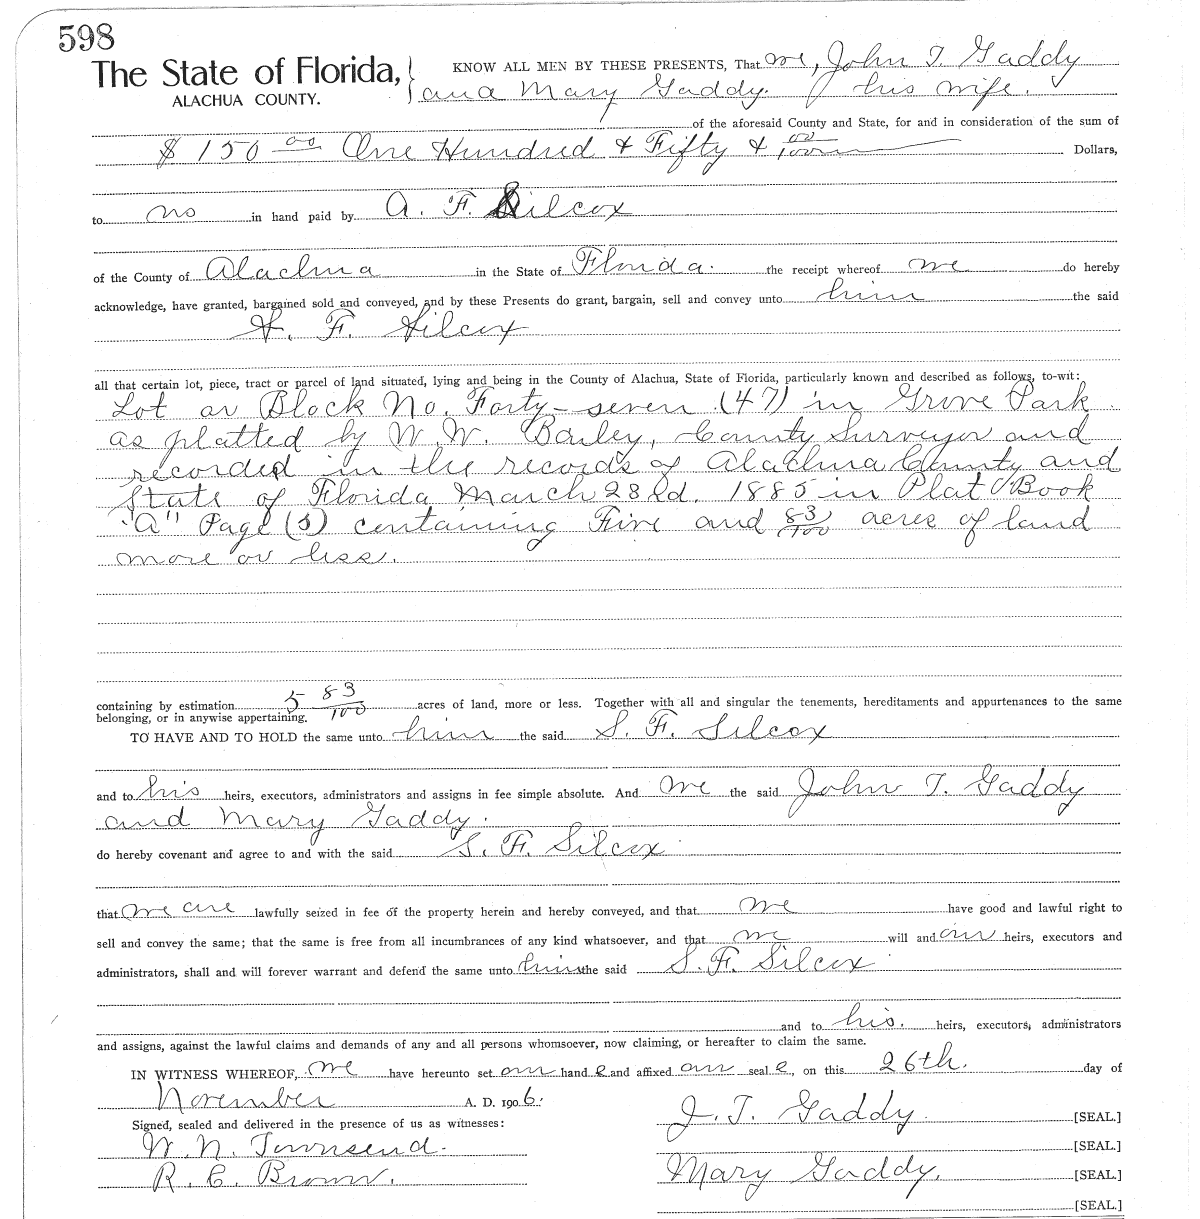 598
The State of Florida, } KNOW ALL MEN BY THESE PRESENTS, That we, John T. Gaddy
ALACHUA COUNTY. and Mary Gaddy. his wife.
of the aforesaid County and State, for and in consideration of the sum of
$150 00 One Hundred & Fifty & 00/100 Dollars,
to us in hand paid by A. F. Silcox
of the County of Alachua in the State of Florida. the receipt whereof we do hereby
acknowledge, have granted, bargained sold and conveyed, and by these Presents do grant, bargain, sell and convey unto him the said
F. Silcox
all that certain lot, piece, tract or parcel of land situated, lying and being in the County of Alachua, State of Florida, particularly known and described as follows, to-wit:
Lot or Block No. Forty-seven (47) in Grove Park
as platted by W. W. Bailey, County Surveyor and
recorded in the records of Alachua County and
State of Florida March 28d. 1885 in Plat Book
"A" Page (5) containing Five and 83/100 acres of land
more or less.
containing by estimation 5 83/100 acres of land, more or less. Together with all and singular the tenements, hereditaments and appurtenances to the same
belonging, or in anywise appertaining.
TO HAVE AND TO HOLD the same unto him the said S. F. Silcox
and to his heirs, executors, administrators and assigns in fee simple absolute. And we the said John T. Gaddy
and Mary Gaddy.
do hereby covenant and agree to and with the said S. F. Silcox
that we are lawfully seized in fee of the property herein and hereby conveyed, and that we have good and lawful right to
sell and convey the same; that the same is free from all incumbrances of any kind whatsoever, and that we will and our heirs, executors and
administrators, shall and will forever warrant and defend the same unto him the said S. F. Silcox
and to his. heirs, executors, administrators
and assigns, against the lawful claims and demands of any and all persons whomsoever, now claiming, or hereafter to claim the same.
IN WITNESS WHEREOF, we have hereunto set our hand s and affixed our seal s, on this 26th. day of
November A. D. 1906.
Signed, sealed and delivered in the presence of us as witnesses: J. T. Gaddy [SEAL.]
W. N. Townsend. [SEAL.]
R. C. Brown. Mary Gaddy. [SEAL.]
[SEAL.]